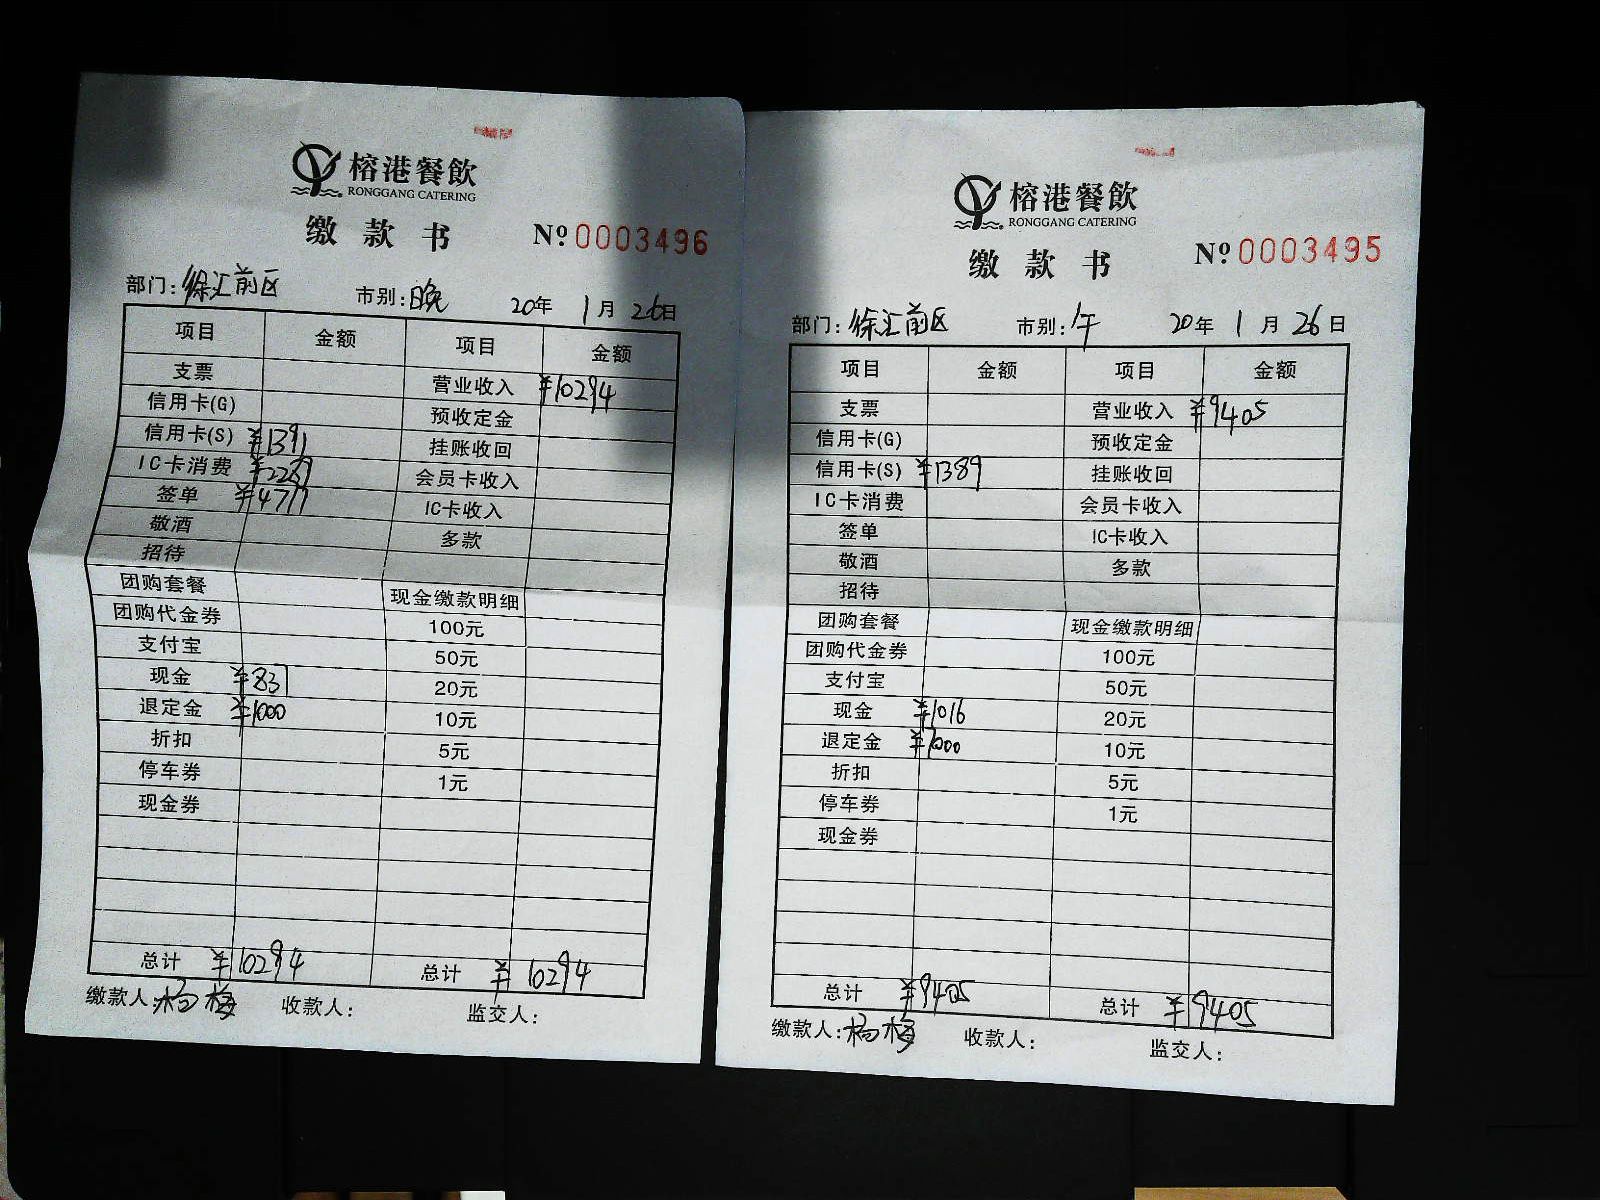 榕港餐飲
RONGGANG CATERING
缴款书 Nº 0003496
部门:徐汇前区 市别:晚 20年 1月 26日
项目 金额 项目 金额
支票 营业收入 ¥10294
信用卡(G) 预收定金
信用卡(S) ¥1391 挂账收回
IC卡消费 ¥2289 会员卡收入
签单 ¥4777 IC卡收入
敬酒 多款
招待
团购套餐 现金缴款明细
团购代金券 100元
支付宝 50元
现金 ¥837 20元
退定金 ¥1000 10元
折扣 5元
停车券 1元
现金券
总计 ¥10294 总计 ¥10294
缴款人:杨梅 收款人: 监交人:
榕港餐飲
RONGGANG CATERING
缴款书 Nº 0003495
部门:徐汇前区 市别:午 20年 1月 26日
项目 金额 项目 金额
支票 营业收入 ¥9405
信用卡(G) 预收定金
信用卡(S) ¥1389 挂账收回
IC卡消费 会员卡收入
签单 IC卡收入
敬酒 多款
招待
团购套餐 现金缴款明细
团购代金券 100元
支付宝 50元
现金 ¥1016 20元
退定金 ¥1000 10元
折扣 5元
停车券 1元
现金券
总计 ¥9405 总计 ¥9405
缴款人:杨梅 收款人: 监交人: